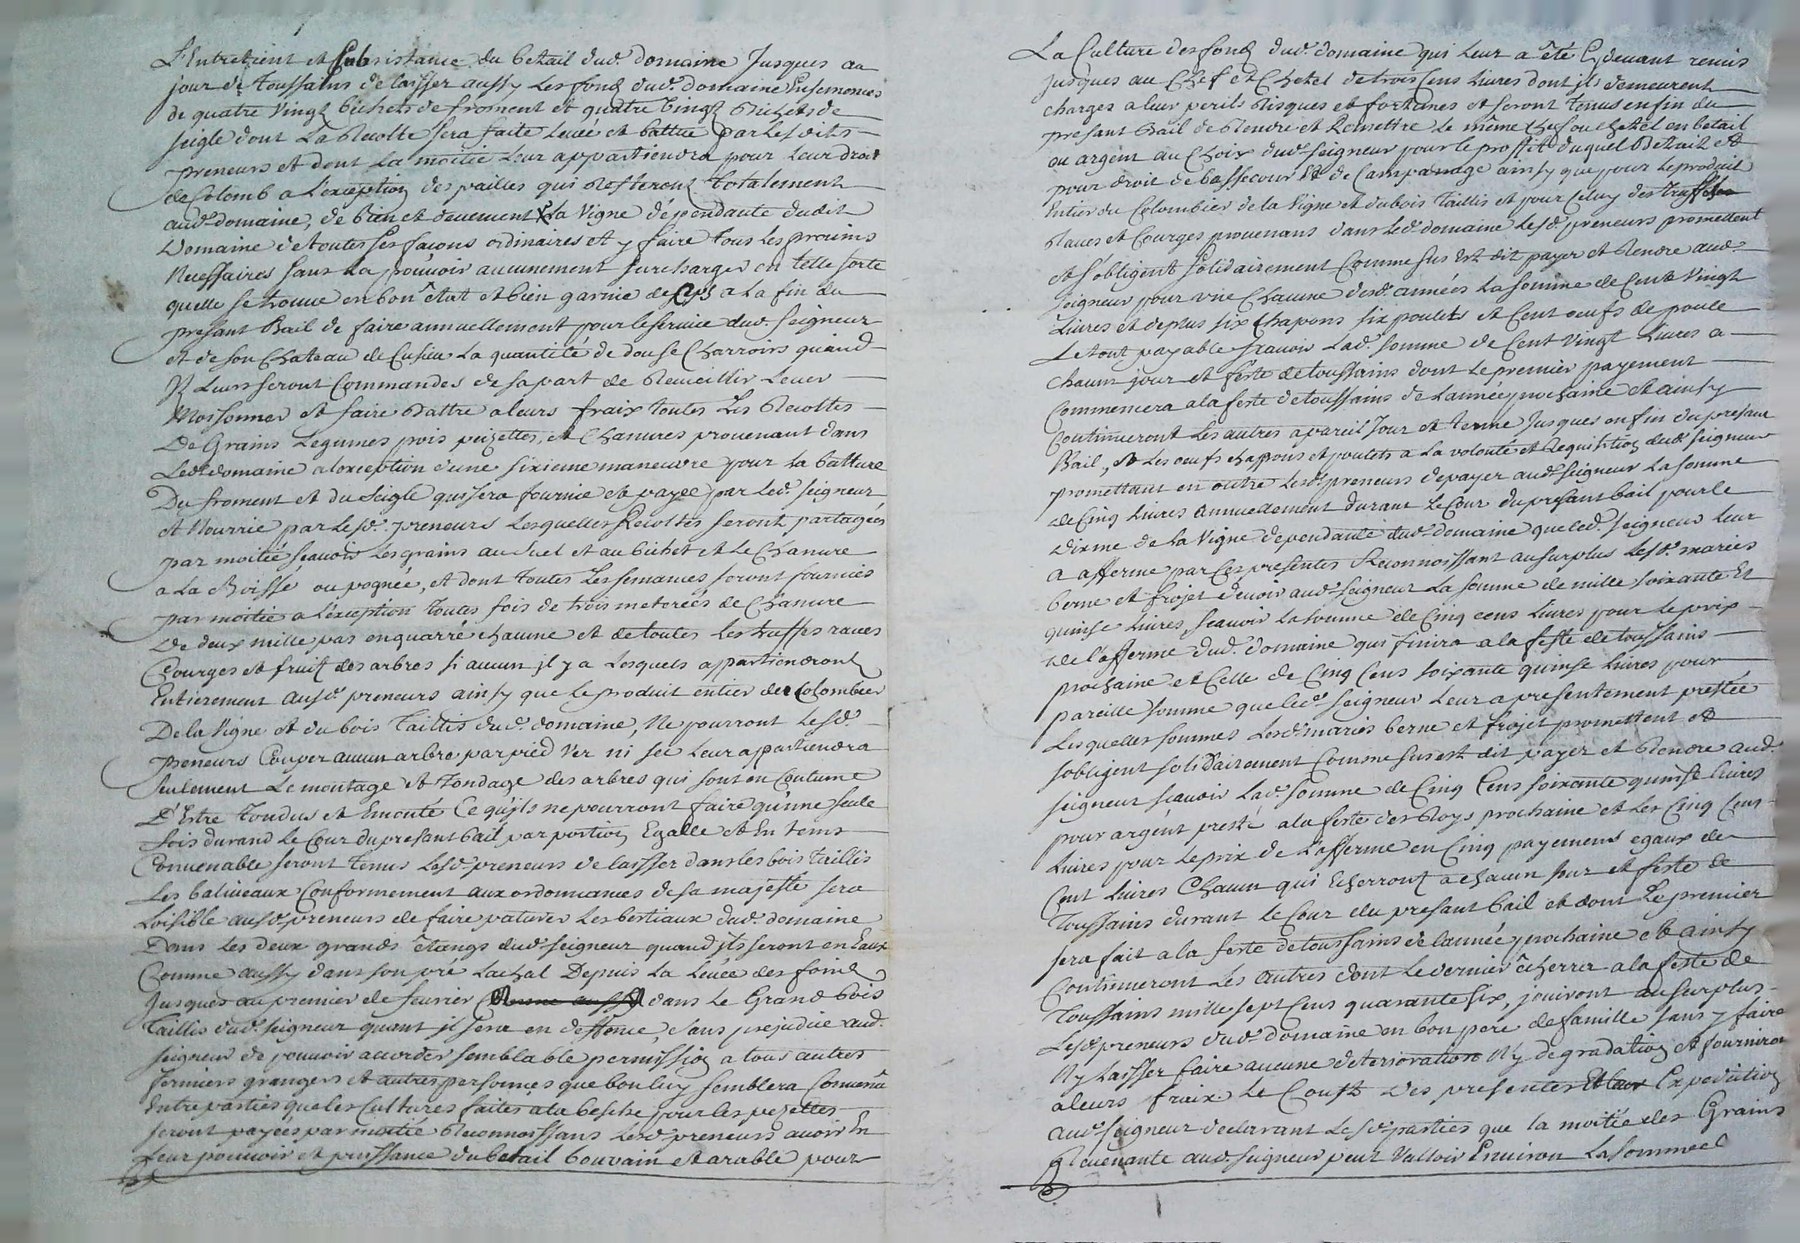 L'Entretient et subsistance du betail dud. domaine Jusques au
jour de toussains de laisser aussy les fond dud. domaine Ensemencés
de quatre vingt bichets de froment et quatre vingt Bichets de
seigle dont La Recolte sera faite levée et battue par lesdits
preneurs et dont La moitié leur appartiendra pour leur droit
de Colomb a L'exception des pailles qui Resteront totalement
aud. domaine, de bien et deuement la Vigne dépendante dudit
Domaine de toutes ses façons ordinaires et y faire tous les prouins
Necessaires sans La pouuoir aucunement surcharger en telle sorte
quelle se trouue en bon état et bien garnie de ceps a la fin du
presant Bail de faire annuellement pour le seruice dud. seigneur
et de son Chateau de Cusieu La quantité de douse Charroirs quand
Il Leurs seront Commandes de sa part de Recueillir Leuer
Moissonner et faire Battre a leurs fraix toutes Les Recoltes
De Grains Legumes pois peizettes, et Chanures prouenant dans
Led. domaine a lexception d'une sixieme maneuvre pour la batture
Du froment et du Seigle qui sera fournie et payée par led. seigneur
et Nourrie par lesd. preneurs Lesquelles Recoltes seront partagées
par moitié scauoir Les grains au suel et au bichet et le Chanure
a La Boisse ou pognée, et dont toutes Les semances seront fournies
par moitié a l'exception toutes fois de trois meterées de Chanure
de deux mille pas en quarré chacune et de toutes les truffes raues
Courges et fruit des arbres si aucun jl y a Lesquels appartiendront
Entierement ausd. preneurs ainsy que le produit entier du Colombier
De la Vigne et du bois Taillis dud. domaine, Ne pourront Lesd.
preneurs Couper aucun arbre par pied Ver ni sec Leur appartiendra
seulement Le montage et tondage des arbres qui sont en Coutume
D'Estre tondus et Emonté Ce qu'jls ne pourront faire qu'une seule
fois durand le Cour du presant bail par portion Egalle et En tems
Conuenable seront tenus Lesd. preneurs de laisser dans les bois taillis
Les baliueaux Conformement aux ordonnances de sa majesté sera
Loisible ausd. preneurs de faire paturer Les bestiaux dud. domaine
Dans Les deux grands étangs dud. seigneur quand jls seront en Eaux
Comme aussy dans son pré Lachal Depuis La leuée des foins
Jusques au premier de feurier dans le Grand bois
Taillis dud. seigneur quant jl sera en deffence, sans prejudice aud.
seigneur de pouuoir accorder semblable permission a tous autres
fermiers grangers et autres personnes que bon luy semblera Conuenû
Entre parties que les Cultures faites a la besche pour les pezettes
seront payées par moitié Reconnoissans Lesd. preneurs auoir En
Leur pouuoir et puissance du betail bouvain et arable pour
La Culture des fond dud. domaine qui Leur a été Cydeuant remis
jusques au Chef et Chetel de trois Cens Livres dont jls demeurent
charges a leur perils Risques et fortunes et seront tenus en fin du
presant Bail de Rendre et Remettre Le même chef ou chetel en betail
ou argent au Choix dud. seigneur pour le proffit duquel Betail et
pour droit de bassecour et de Campanage ainsy que pour le produit
Entier du Colombier de la Vigne et du bois Taillis et pour Celuy des truffes
Raues et Courges prouenans dans led. domaine Lesd. preneurs promettent
et s'obligent solidairement Comme sus est dit payer et Rendre aud.
seigneur pour vne Chacune desd. années La somme de Cent Vingt
Liures et de plus six Chapons six poulets et Cent oeufs de poule
Le tout payable scauoir Lad. somme de Cent vingt Liures a
chacun jour et feste de toussains dont Le premier payement
Commencera a la feste de toussains de l'année prochaine et ainsy
Continueront Les autres a pareil Jour et terme Jusques en fin du presant
Bail, et Les oeufs chappons et poulets a La volonté et Requisition dud. seigneur
promettant en outre Lesd. preneurs de payer aud. seigneur La somme
de Cinq Liures annuellement durant Le Cour du presant bail pour le
dixme de La Vigne dependante dud. domaine que led. seigneur Leur
a afferme par Ces presentes Reconnoissant au surplus Lesd. mariés
berne et frojet deuoir aud. seigneur La somme de mille soixante Et
quinse Livres scauoir La somme de Cinq cens Livres pour Le prix
de l'afferme dud. domaine qui finira a la feste de toussains
prochaine et Celle de Cinq Cens soixante quinse Livres pour
pareille somme que led. seigneur Leur a presentement prestée
Lesquelles sommes Lesd. mariés berne et frojet promettent et
sobligent solidairement Comme sus est dit payer et Rendre aud.
seigneur scauoir Lad. somme de Cinq Cens soixante quinse Livres
pour argent presté a la feste des Roys prochaine et les Cinq Cens
Livres pour Le prix de L'afferme en Cinq payemens egaux de
Cent Livres Chacun qui Echerront a chacun Jour et feste de
Toussains durant le Cour du presant bail et dont Le premier
sera fait a la feste de toussains de l'année prochaine et ainsy
Continueront Les autres dont le dernier écherra a la feste de
Toussains mille sept Cens quarante six, jouiront au surplus
Lesd. preneurs dud. domaine en bon pere de famille sans y faire
Ny Laisser faire aucune deterioration Ny degradation et fourniront
a leurs fraix Le Coust des presentes Et leur Expedition
aud. seigneur declarant Lesd. parties que la moitié des Grains
Reuenante aud. seigneur peut Valloir Enuiron La somme